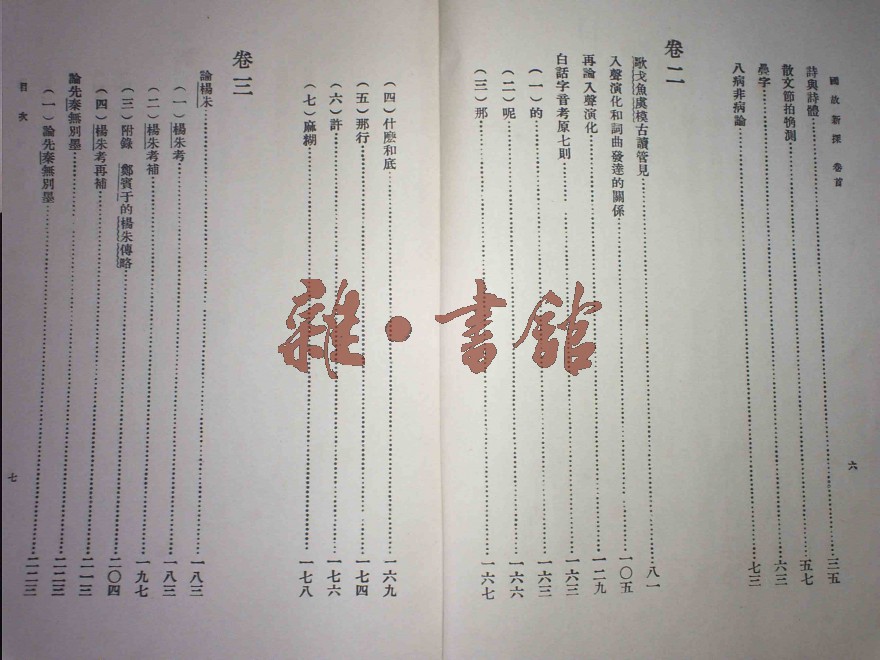 國故新探 卷首
六
詩與詩體 三五
散文節拍觕測 五七
疊字 六三
八病非病論 七三
卷二
歌戈魚虞模古讀管見 八一
入聲演化和詞曲發達的關係 一〇五
再論入聲演化 一二九
白話字音考原七則 一六三
（一）的 一六三
（二）呢 一六六
（三）那 一六七
（四）什麼和底 一六九
（五）那行 一七四
（六）許 一七六
（七）麻糊 一七八
卷三
論楊朱 一八三
（一）楊朱考 一八三
（二）楊朱考補 一九七
（三）附錄 鄭賓于的楊朱傳略 二〇四
（四）楊朱考再補 二一三
論先秦無別墨 二二三
（一）論先秦無別墨 二二三
目次
七
雜·書館